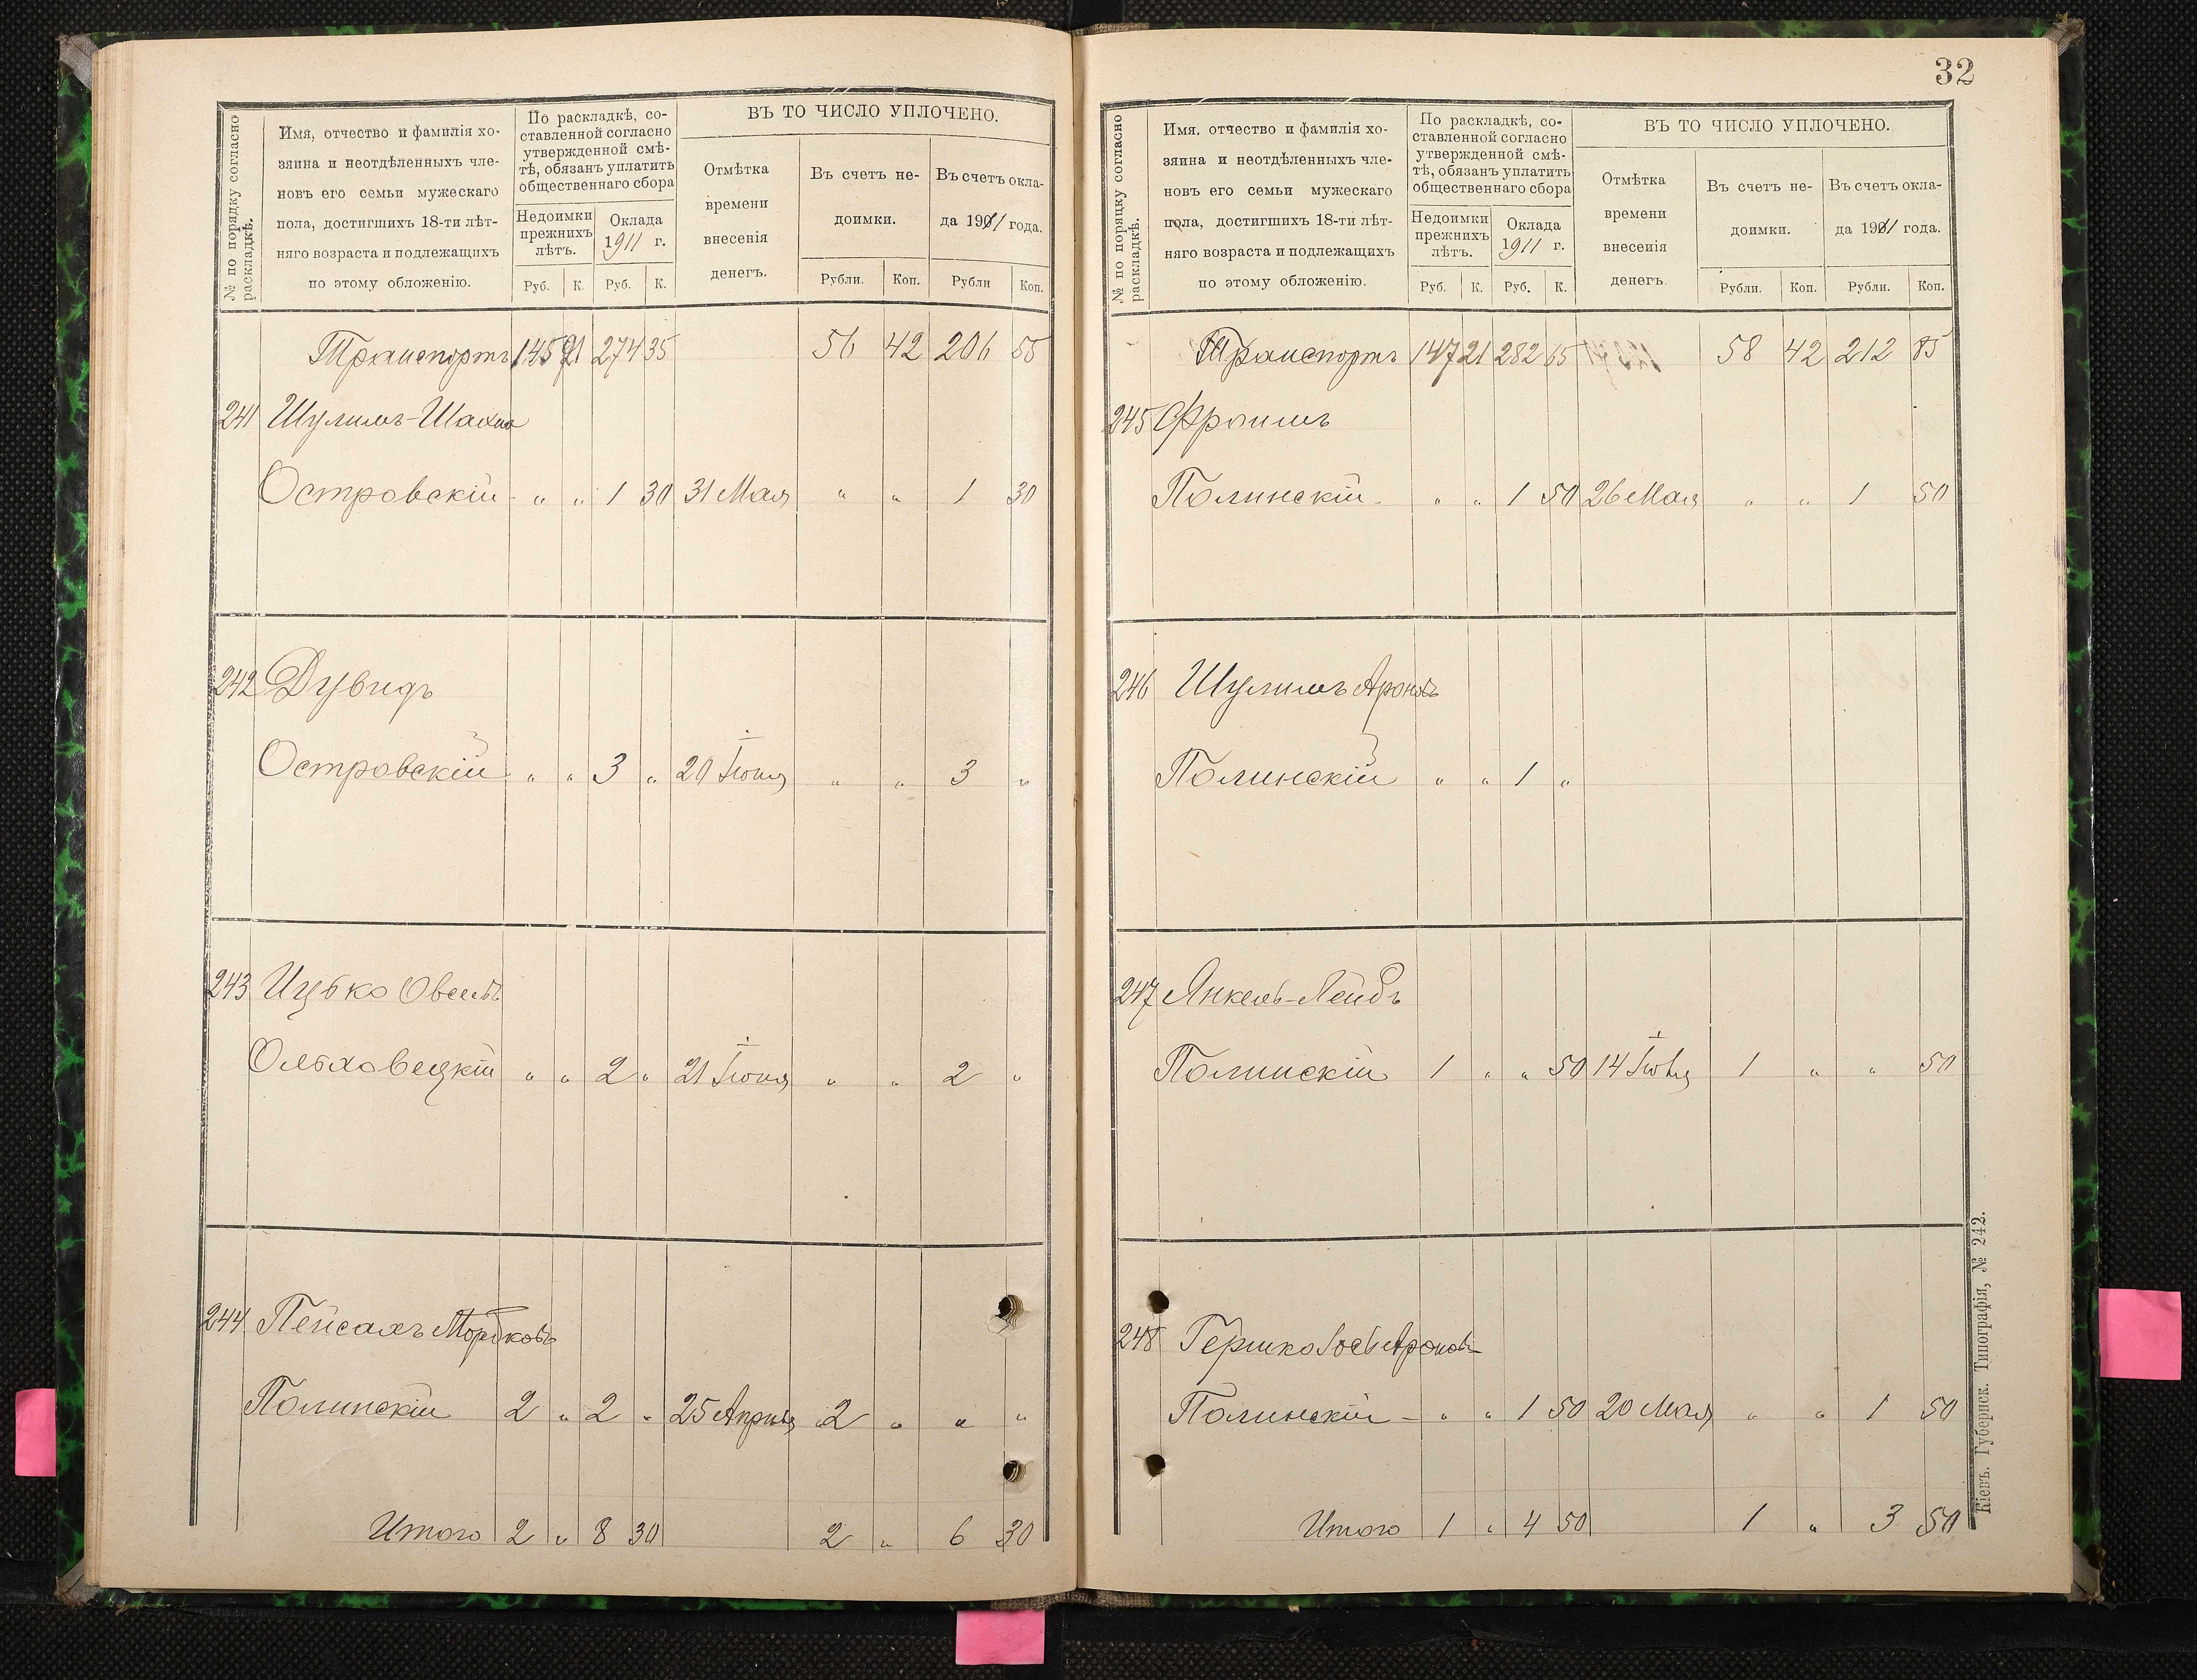 № по порядку согласно
раскладкѣ.
Имя, отчество и фамилія хо-
зяина и неотдѣленныхъ чле-
новъ его семьи мужескаго
пола, достигшихъ 18-ти лѣт-
няго возраста и подлежащихъ
по этому обложенію.
По раскладкѣ, со-
ставленной согласно
утвержденной смѣ-
тѣ, обязанъ уплатить
общественнаго сбора
Недоимки
прежнихъ
лѣтъ.
Оклада
1911 г.
Руб. К. Руб. К.
ВЪ ТО ЧИСЛО УПЛОЧЕНО.
Отмѣтка
времени
внесенія
денегъ.
Въ счетъ не-
доимки.
Въ счетъ окла-
да 1911 года.
Рубли. Коп. Рубли Коп.
Транспортъ 145 21 274 35 56 42 206 55
241 Шулимъ-Шахна
Островскій " " 1 30 31 Мая " " 1 30
242 Дувидъ
Островскій " " 3 " 20 Іюня " " 3 "
243 Ицько Овсеевъ
Ольховецкій " " 2 " 21 Іюня " " 2 "
244 Пейсахъ Мордковъ
Полинскій 2 " 2 " 25 Апрѣля 2 " " "
Итого 2 " 8 30 2 " 6 30
32
№ по порядку согласно
раскладкѣ.
Имя, отчество и фамилія хо-
зяина и неотдѣленныхъ чле-
новъ его семьи мужескаго
пола, достигшихъ 18-ти лѣт-
няго возраста и подлежащихъ
по этому обложенію.
По раскладкѣ, со-
ставленной согласно
утвержденной смѣ-
тѣ, обязанъ уплатить
общественнаго сбора
Недоимки
прежнихъ
лѣтъ.
Оклада
1911 г.
Руб. К. Руб. К.
ВЪ ТО ЧИСЛО УПЛОЧЕНО.
Отмѣтка
времени
внесенія
денегъ
Въ счетъ не-
доимки.
Въ счетъ окла-
да 1911 года.
Рубли. Коп. Рубли. Коп.
Транспортъ 147 21 282 65 58 42 212 85
245 Фроимъ
Полинскій " " 1 50 26 Мая " " 1 50
246 Шулимъ Ароновъ
Полинскій " " 1 "
247 Янкель-Лейбъ
Полинскій 1 " " 50 14 1 " " 50
248 Гершко Іось Ароновъ
Полинскій " " 1 50 20 Мая " " 1 50
Итого 1 " 4 50 1 " 3 50
Кіевъ. Губернск. Типографія, № 242.